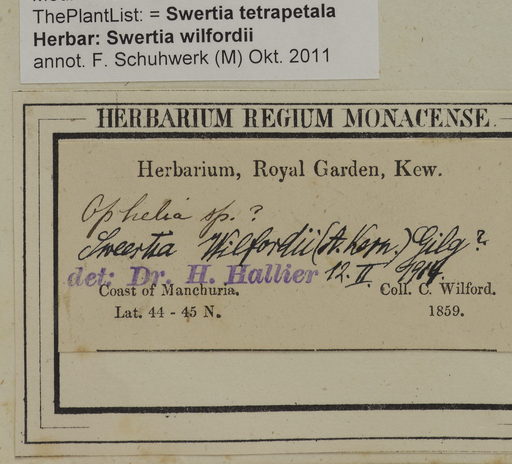 ThePlantList: = Swertia tetrapetala
Herbar: Swertia wilfordii
annot. F. Schuhwerk (M) Okt. 2011
HERBARIUM REGIUM MONACENSE.
Herbarium, Royal Garden, Kew.
Ophelia sp.?
Sweertia Wilfordii (A. Kern.) Gilg?
det: Dr. H. Hallier 12. II 1914.
Coast of Manchuria. Coll. C. Wilford.
Lat. 44 - 45 N. 1859.